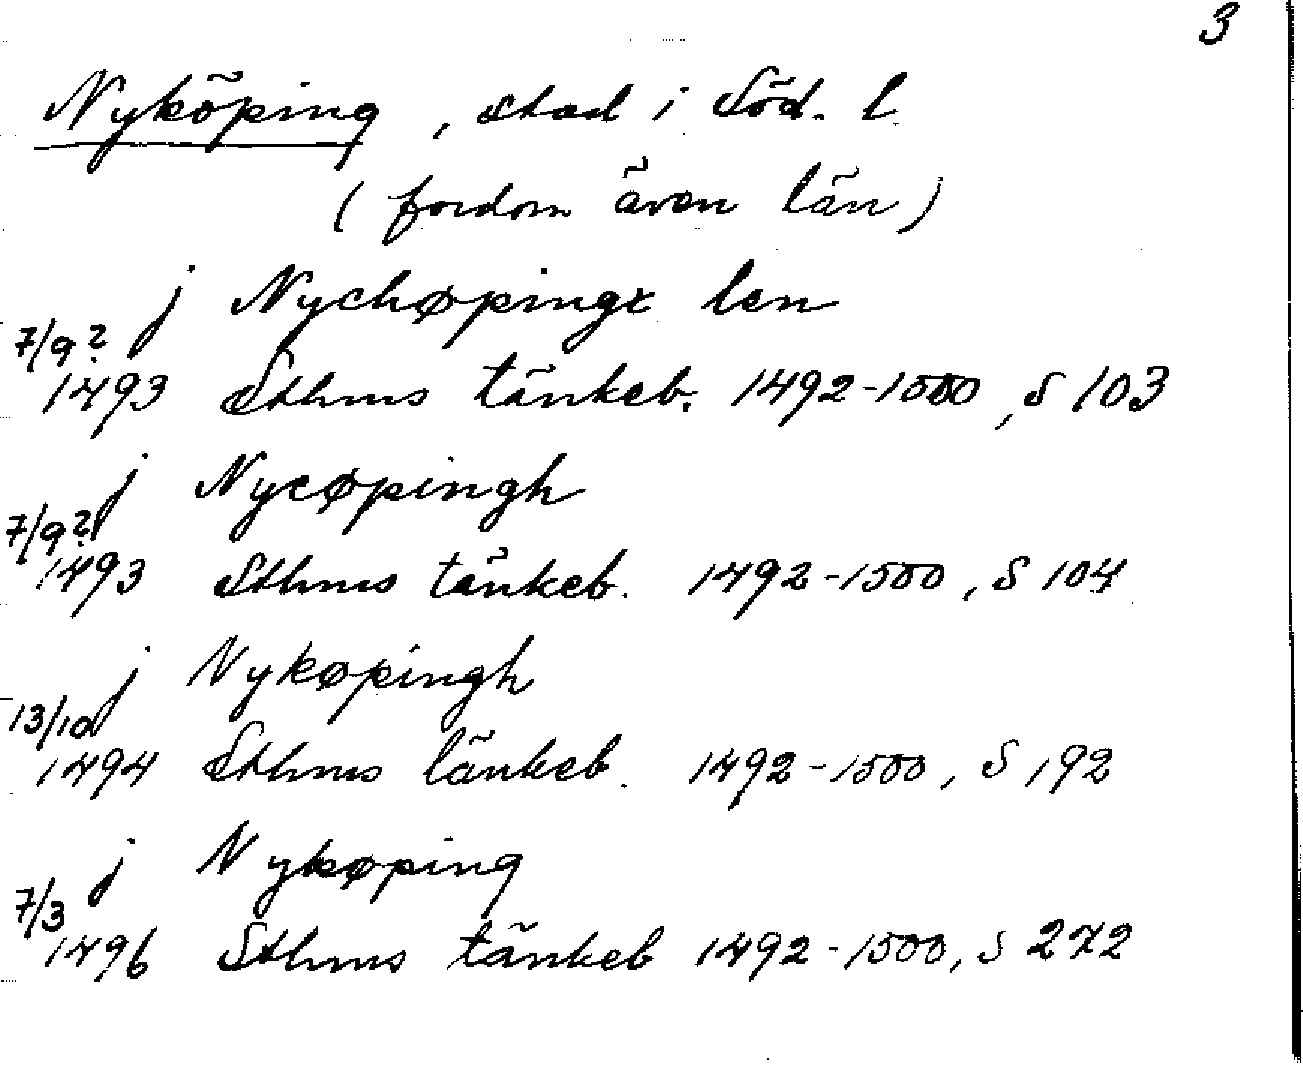 3
Nyköping, stad i Söd. l
(fordom även län)
j Nychøpingx len
7/9?
1493 Sthms tänkeb. 1492-1500, S 103
j Nycøpingh
7/9?
1493 Sthms tänkeb. 1492-1500, S 104
j Nykøpingh
13/10
1494 Sthms tänkeb. 1492-1500, S 192
j Nykøping
7/3
1496 Sthms tänkeb 1492-1500, S 272